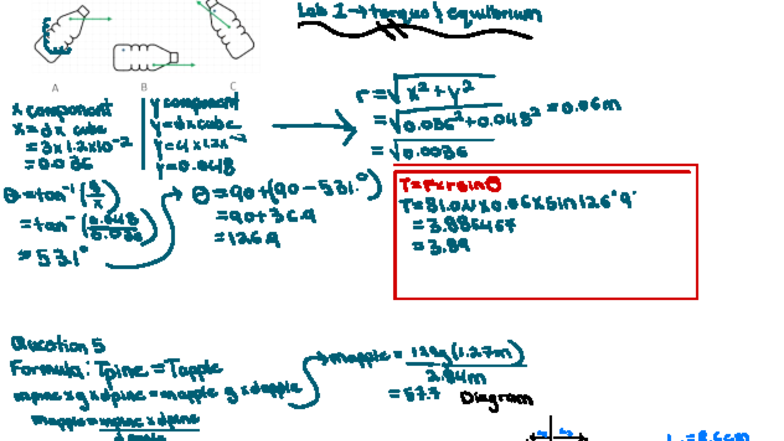 Lab 1 → torque & equilibrium
A B C
x component
x = d x cube
= 3x1.2x10⁻²
= 0.036
y component
y = d x cube
y = 4 x 1.2x⁻²
y = 0.048
r = √x² + y²
= √0.036² + 0.048² = 0.06m
= √0.0036
θ = tan⁻¹(y/x)
= tan⁻(0.048/0.036)
= 53.1°
θ = 90 + (90 - 53.1°)
= 90 + 36.9
= 126.9
T = F x r sin θ
T = 81.0N x 0.06 x sin 126°9'
= 3.886467
= 3.89
Question 5
Formula: Tpine = Tapple
mpine x g x dpine = mapple g x dapple
mapple = mpine x dpine
dapple
mapple = (1.27m)
2.84m
= 57.7
Diagram
= 8.6cm